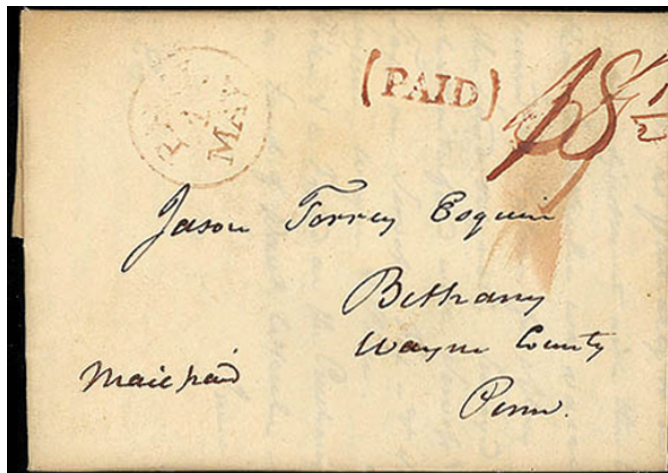 MAY
(PAID)
18 1/2
Jason Torrey Esquire
Bethany
Wayne County
Penn.
Mail paid